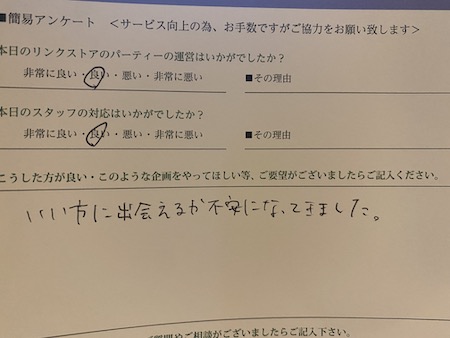 ■簡易アンケート ＜サービス向上の為、お手数ですがご協力をお願い致します＞
本日のリンクストアのパーティーの運営はいかがでしたか？
非常に良い・良い・悪い・非常に悪い ■その理由
本日のスタッフの対応はいかがでしたか？
非常に良い・良い・悪い・非常に悪い ■その理由
こうした方が良い・このような企画をやってほしい等、ご要望がございましたらご記入ください。
いい方に出会えるか不安になってきました。
質問やご相談がございましたらご記入下さい。